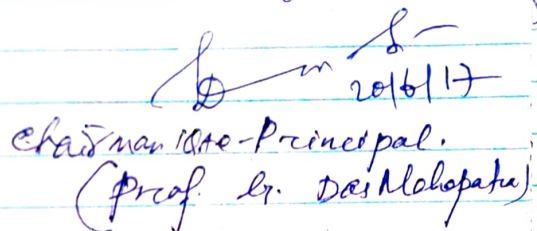 20/6/17
Chairman IQAC-Principal.
(Prof. G. Das Mohapatra)